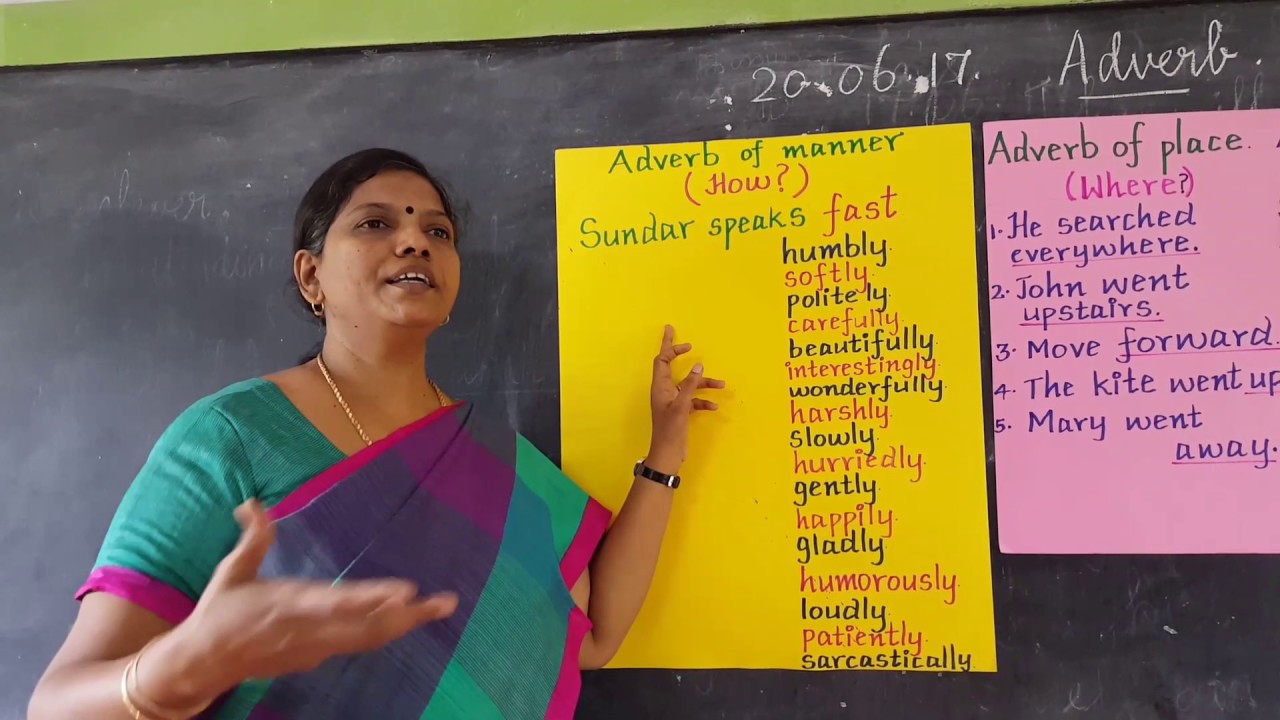 20.06.17. Adverb.
Adverb of manner
(How?)
Sundar speaks fast
humbly.
softly.
politely.
carefully.
beautifully.
interestingly.
wonderfully.
harshly.
slowly.
hurriedly.
gently.
happily.
gladly.
humorously.
loudly.
patiently.
sarcastically.
Adverb of place.
(Where?)
1. He searched
everywhere.
2. John went
upstairs.
3. Move forward.
4. The kite went up
5. Mary went
away.